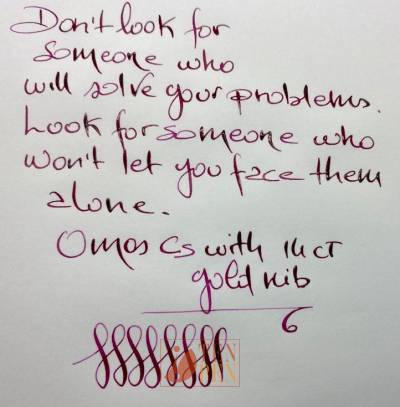 Don't look for
someone who
will solve your problems.
Look for someone who
won't let you face them
alone.
Omas Cs with 14 CT
gold nib
6